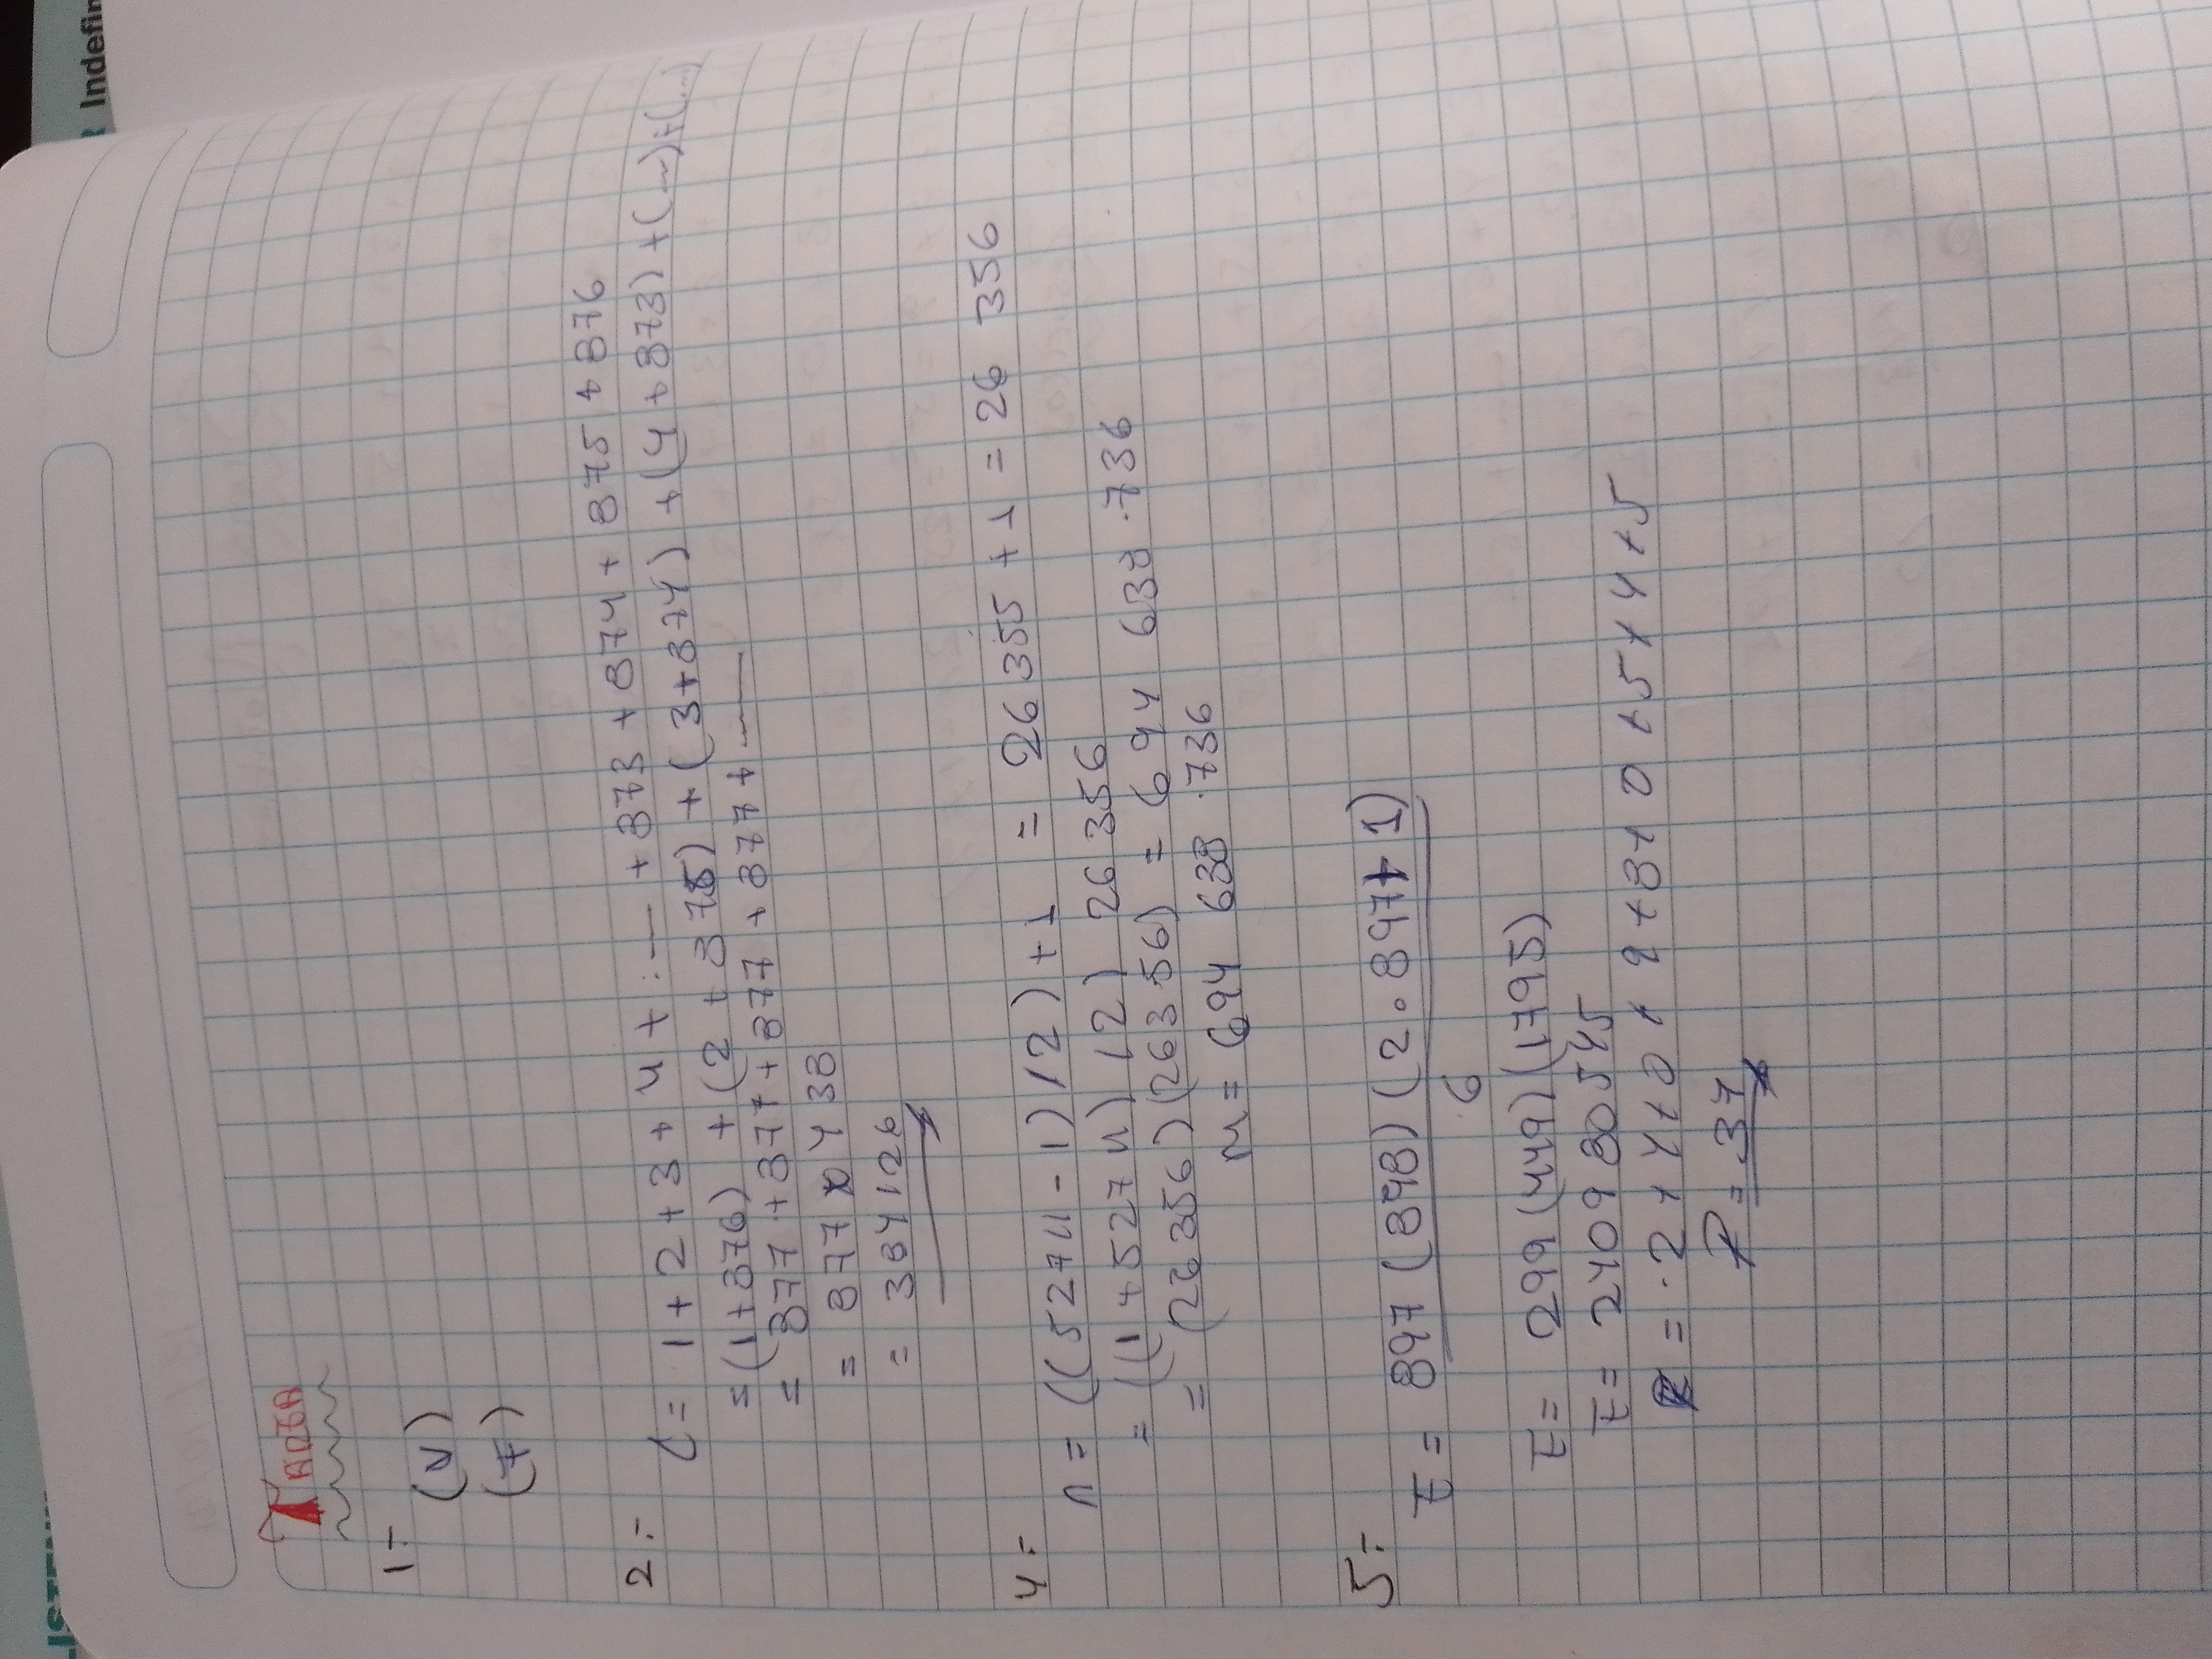 Indefin
LISTEN
TAREA
1=
(V)
(F)
2=
C= 1+2+3+4+...— +873+874+875+876
=(1+876) +(2+875)+(3+874)+(4+873)+(...)+(...)
= 877+877+877+877+877+......
= 877x438
= 384126
4=
n= ((52711-1)/2)+1 = 26355+1=26 356
= ((1+52711)/2) 26356
= (26356)(26356) = 694 638.736
m= 694 638.736
5=
E= 897(898)(2.897+1)
6
E= 299(449)(1795)
E= 240980545
= 2+4+0+9+8+0+5+4+5
P= 37